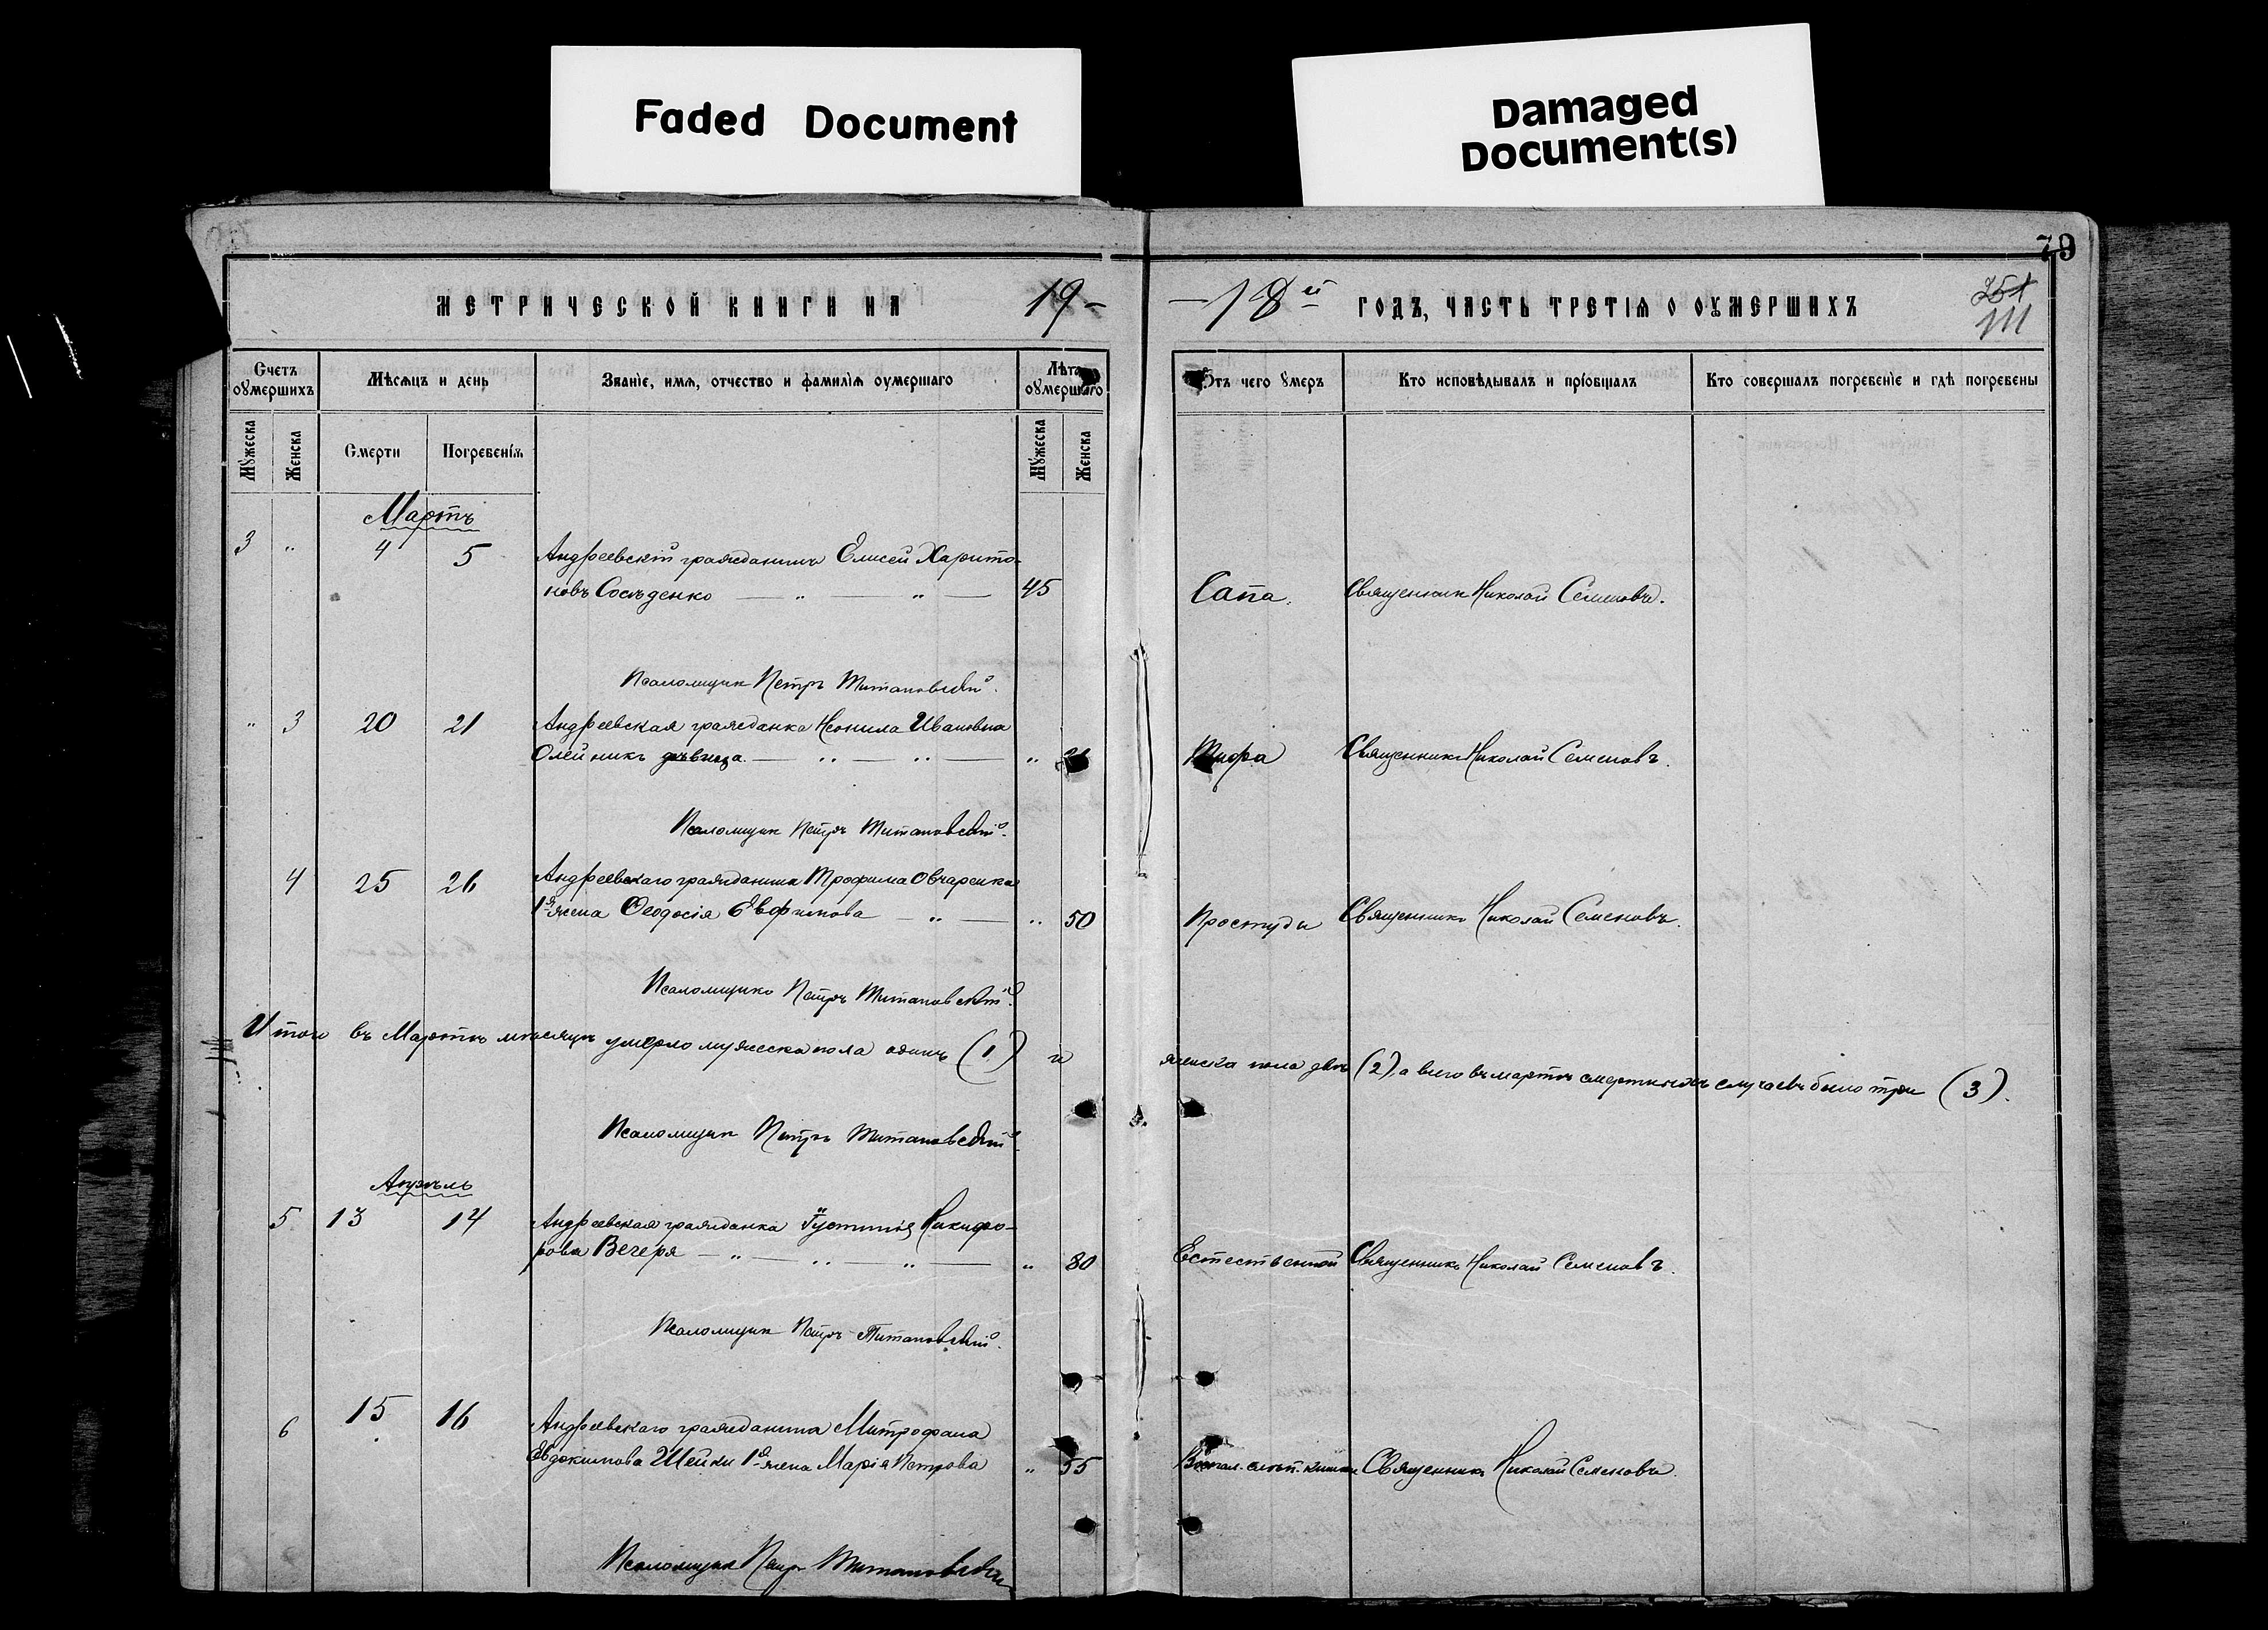 Faded Document
Damaged
Document(s)
79
МЕТРИЧЕСКОЙ КНИГИ НА 19-
-18й ГОДЪ, ЧАСТЬ ТРЕТІѦ О ОУМЕРШИХЪ
251
111
Счетъ оумершихъ
Мѣсѧцъ и день
Званіе, имѧ, отчество и фамиліѧ оумершаго
Лѣта оумершаго
Отъ чего умеръ
Кто исповѣдывалъ и пріобщалъ
Кто совершалъ погребеніе и гдѣ погребены
Мужеска
Женска
Смерти
Погребеніѧ
Мужеска
Женска
Мартъ
3 " 4 5 Андреевскій гражданинъ Елисей Харито-
новъ Сосѣденко — " — " — 45 Сапа. Священникъ Николай Семеновъ.
Псаломщикъ Петръ Титановскій.
" 3 20 21 Андреевская гражданка Неонила Ивановна
Олейникъ дѣвица. — " — " — " Тифа Священникъ Николай Семеновъ.
Псаломщикъ Петръ Титановскій.
4 25 26 Андреевскаго гражданина Трофима Овчаренка
1я жена Феодосія Евфимова — " — " 50 Простуды Священникъ Николай Семеновъ.
Псаломщикъ Петръ Титановскій.
Итого въ Мартѣ мѣсяцѣ умерло мужеска пола одинъ (1) и женска пола двѣ (2), а всего въ мартѣ смертныхъ случаевъ было три (3).
Псаломщикъ Петръ Титановскій.
Апрѣль
5 13 14 Андреевская гражданка Іустинія Никифо-
рова Вечеря — " — " — " — " 80 Естественной Священникъ Николай Семеновъ.
Псаломщикъ Петръ Титановскій.
6 15 16 Андреевскаго гражданина Митрофана
Евдокимова Шейки 1я жена Марія Петрова " 55 Воспал. слѣп. кишки Священникъ Николай Семеновъ.
Псаломщикъ Петръ Титановскій